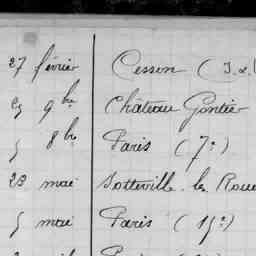 27 février Cesson (I.&
25 9bre Château Gontier
5 8bre Paris (7e)
23 mai Sotteville-les-Roue
5 mai Paris (15e)
Paris